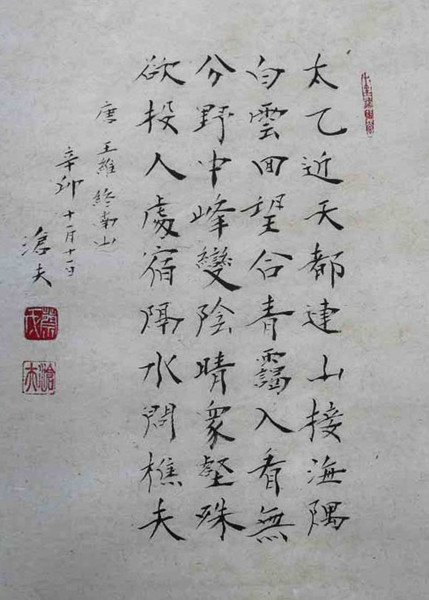 太乙近天都連山接海隅
白雲回望合青靄入看無
分野中峰變陰晴衆壑殊
欲投人處宿隔水問樵夫
唐 王維 終南山
辛卯 滄夫
滄夫